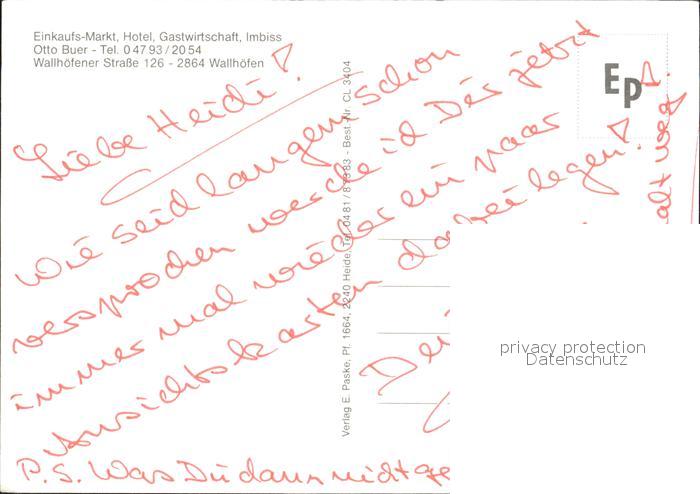 Einkaufs-Markt, Hotel, Gastwirtschaft, Imbiss
Otto Buer - Tel. 0 47 93 / 20 54
Wallhöfener Straße 126 - 2864 Wallhöfen
Liebe Heidi!
Wie seid langem schon
versprochen werde id Dir jetzt
immer mal wieder ein paar
Ansichtskarten dabei legen!
P.S. Was Du dann nicht
alt weg
Verlag E. Paske, Pf. 1664, 2240 Heide, Tel. 0481/ - Best.-Nr. CL 3404
EP
privacy protection
Datenschutz